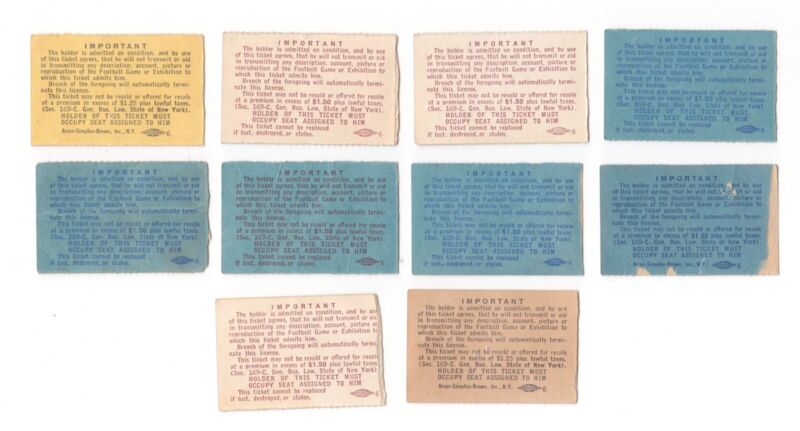 IMPORTANT
The holder is admitted on condition, and by use
of this ticket agrees, that he will not transmit or aid
in transmitting any description, account, picture or
reproduction of the Football Game or Exhibition to
which this ticket admits him.
Breach of the foregoing will automatically termi-
nate this license.
This ticket may not be resold or offered for resale
at a premium in excess of $1.25 plus lawful taxes.
(Sec. 169-C. Gen. Bus. Law, State of New York).
HOLDER OF THIS TICKET MUST
OCCUPY SEAT ASSIGNED TO HIM
Arcus-Simplex-Brown, Inc., N.Y. 6
IMPORTANT
The holder is admitted on condition, and by use
of this ticket agrees, that he will not transmit or aid
in transmitting any description, account, picture or
reproduction of the Football Game or Exhibition to
which this ticket admits him.
Breach of the foregoing will automatically termi-
nate this license.
This ticket may not be resold or offered for resale
at a premium in excess of $1.50 plus lawful taxes.
(Sec. 169-C. Gen. Bus. Law, State of New York).
HOLDER OF THIS TICKET MUST
OCCUPY SEAT ASSIGNED TO HIM
This ticket cannot be replaced
if lost, destroyed, or stolen. 6
IMPORTANT
The holder is admitted on condition, and by use
of this ticket agrees, that he will not transmit or aid
in transmitting any description, account, picture or
reproduction of the Football Game or Exhibition to
which this ticket admits him.
Breach of the foregoing will automatically termi-
nate this license.
This ticket may not be resold or offered for resale
at a premium in excess of $1.50 plus lawful taxes.
(Sec. 169-C. Gen. Bus. Law, State of New York).
HOLDER OF THIS TICKET MUST
OCCUPY SEAT ASSIGNED TO HIM
This ticket cannot be replaced
if lost, destroyed, or stolen. 6
IMPORTANT
The holder is admitted on condition, and by use
of this ticket agrees, that he will not transmit or aid
in transmitting any description, account, picture or
reproduction of the Football Game or Exhibition to
which this ticket admits him.
Breach of the foregoing will automatically termi-
nate this license.
This ticket may not be resold or offered for resale
at a premium in excess of $1.50 plus lawful taxes.
(Sec. 169-C. Gen. Bus. Law, State of New York).
HOLDER OF THIS TICKET MUST
OCCUPY SEAT ASSIGNED TO HIM
Arcus-Simplex-Brown, Inc., N.Y. 6
IMPORTANT
The holder is admitted on condition, and by use
of this ticket agrees, that he will not transmit or aid
in transmitting any description, account, picture or
reproduction of the Football Game or Exhibition to
which this ticket admits him.
Breach of the foregoing will automatically termi-
nate this license.
This ticket may not be resold or offered for resale
at a premium in excess of $1.50 plus lawful taxes.
(Sec. 169-C. Gen. Bus. Law, State of New York).
HOLDER OF THIS TICKET MUST
OCCUPY SEAT ASSIGNED TO HIM
This ticket cannot be replaced
if lost, destroyed, or stolen. 6
IMPORTANT
The holder is admitted on condition, and by use
of this ticket agrees, that he will not transmit or aid
in transmitting any description, account, picture or
reproduction of the Football Game or Exhibition to
which this ticket admits him.
Breach of the foregoing will automatically termi-
nate this license.
This ticket may not be resold or offered for resale
at a premium in excess of $1.50 plus lawful taxes.
(Sec. 169-C. Gen. Bus. Law, State of New York).
HOLDER OF THIS TICKET MUST
OCCUPY SEAT ASSIGNED TO HIM
This ticket cannot be replaced
if lost, destroyed, or stolen. 6
IMPORTANT
The holder is admitted on condition, and by use
of this ticket agrees, that he will not transmit or aid
in transmitting any description, account, picture or
reproduction of the Football Game or Exhibition to
which this ticket admits him.
Breach of the foregoing will automatically termi-
nate this license.
This ticket may not be resold or offered for resale
at a premium in excess of $1.50 plus lawful taxes.
(Sec. 169-C. Gen. Bus. Law, State of New York).
HOLDER OF THIS TICKET MUST
OCCUPY SEAT ASSIGNED TO HIM
This ticket cannot be replaced
if lost, destroyed, or stolen. 6
IMPORTANT
The holder is admitted on condition, and by use
of this ticket agrees, that he will not transmit or aid
in transmitting any description, account, picture or
reproduction of the Football Game or Exhibition to
which this ticket admits him.
Breach of the foregoing will automatically termi-
nate this license.
This ticket may not be resold or offered for resale
at a premium in excess of $1.50 plus lawful taxes.
(Sec. 169-C. Gen. Bus. Law, State of New York).
HOLDER OF THIS TICKET MUST
OCCUPY SEAT ASSIGNED TO HIM
Arcus-Simplex-Brown, Inc., N.Y. 6
IMPORTANT
The holder is admitted on condition, and by use
of this ticket agrees, that he will not transmit or aid
in transmitting any description, account, picture or
reproduction of the Football Game or Exhibition to
which this ticket admits him.
Breach of the foregoing will automatically termi-
nate this license.
This ticket may not be resold or offered for resale
at a premium in excess of $1.50 plus lawful taxes.
(Sec. 169-C. Gen. Bus. Law, State of New York).
HOLDER OF THIS TICKET MUST
OCCUPY SEAT ASSIGNED TO HIM
This ticket cannot be replaced
if lost, destroyed, or stolen. 6
IMPORTANT
The holder is admitted on condition, and by use
of this ticket agrees, that he will not transmit or aid
in transmitting any description, account, picture or
reproduction of the Football Game or Exhibition to
which this ticket admits him.
Breach of the foregoing will automatically termi-
nate this license.
This ticket may not be resold or offered for resale
at a premium in excess of $1.25 plus lawful taxes.
(Sec. 169-C. Gen. Bus. Law, State of New York).
HOLDER OF THIS TICKET MUST
OCCUPY SEAT ASSIGNED TO HIM
Arcus-Simplex-Brown, Inc., N.Y. 6